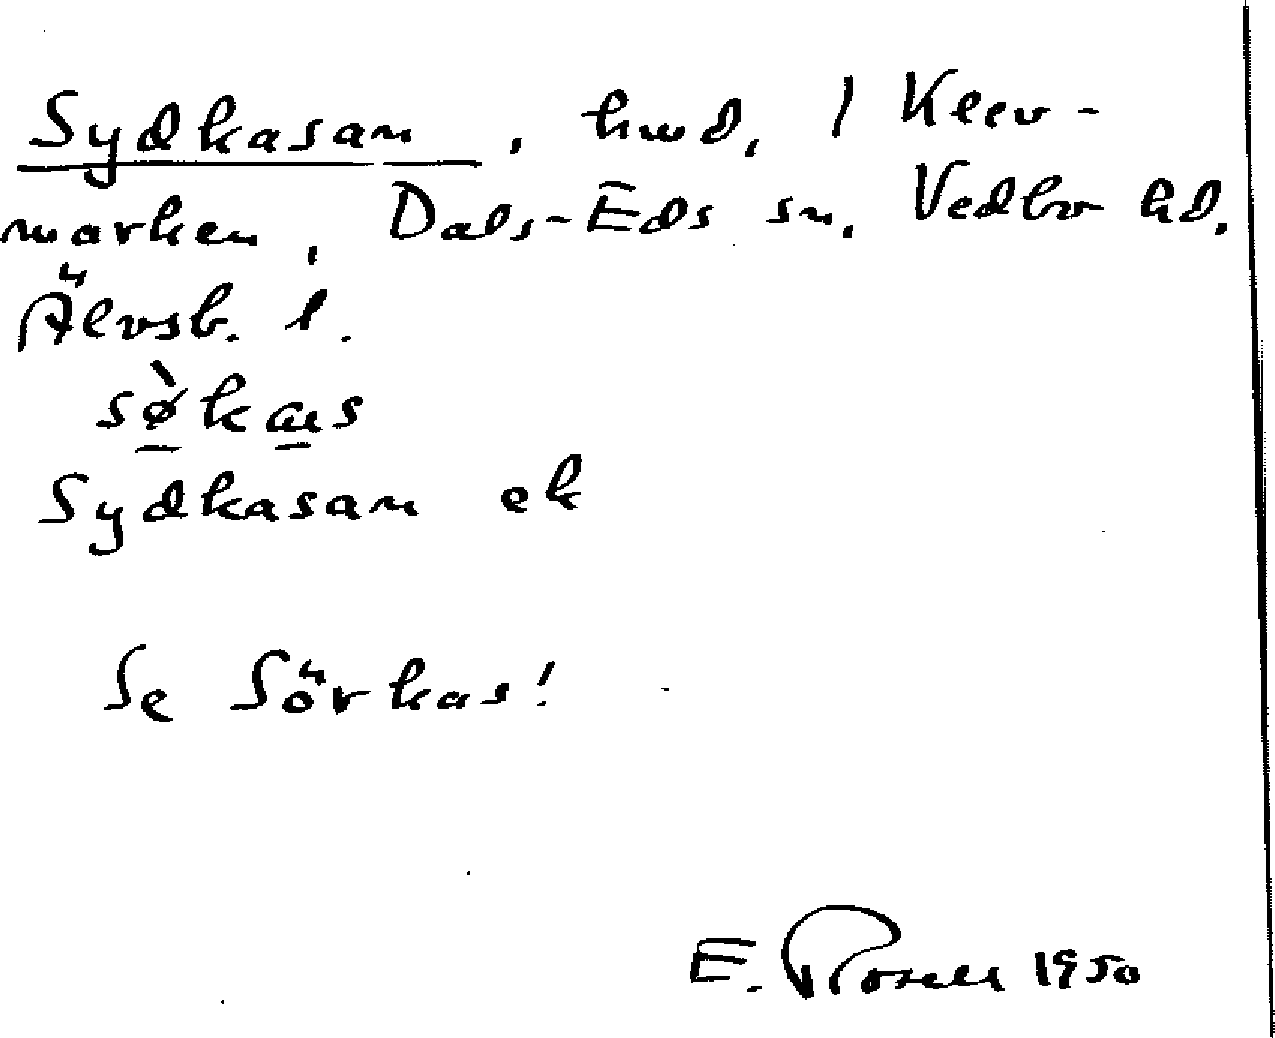 Sydkasan, hmd, / Klev-
marken, Dals-Eds sn, Vedbo hd,
Älvsb. l.
sø̀kas
Sydkasan ek
Se Sörkas!
E. Rosell 1950